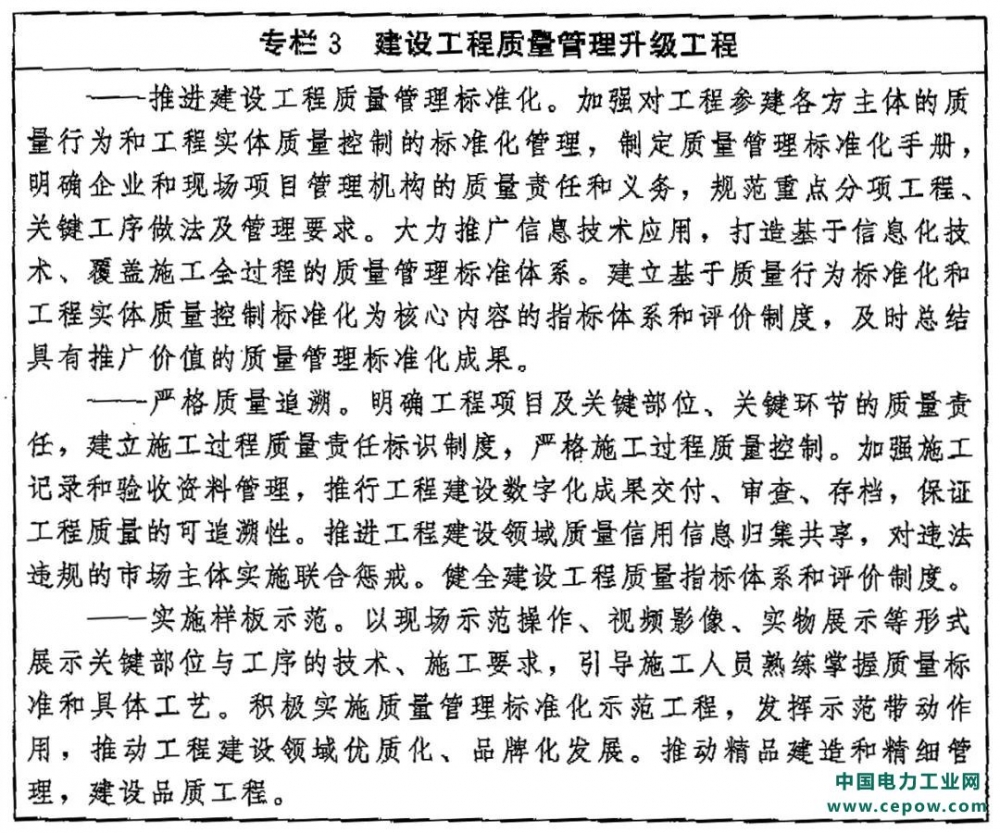 专栏 3 建设工程质量管理升级工程
——推进建设工程质量管理标准化。加强对工程参建各方主体的质
量行为和工程实体质量控制的标准化管理，制定质量管理标准化手册，
明确企业和现场项目管理机构的质量责任和义务，规范重点分项工程、
关键工序做法及管理要求。大力推广信息技术应用，打造基于信息化技
术、覆盖施工全过程的质量管理标准体系。建立基于质量行为标准化和
工程实体质量控制标准化为核心内容的指标体系和评价制度，及时总结
具有推广价值的质量管理标准化成果。
——严格质量追溯。明确工程项目及关键部位、关键环节的质量责
任，建立施工过程质量责任标识制度，严格施工过程质量控制。加强施工
记录和验收资料管理，推行工程建设数字化成果交付、审查、存档，保证
工程质量的可追溯性。推进工程建设领域质量信用信息归集共享，对违法
违规的市场主体实施联合惩戒。健全建设工程质量指标体系和评价制度。
——实施样板示范。以现场示范操作、视频影像、实物展示等形式
展示关键部位与工序的技术、施工要求，引导施工人员熟练掌握质量标
准和具体工艺。积极实施质量管理标准化示范工程，发挥示范带动作
用，推动工程建设领域优质化、品牌化发展。推动精品建造和精细管
理，建设品质工程。
中国电力工业网
www.cepow.com